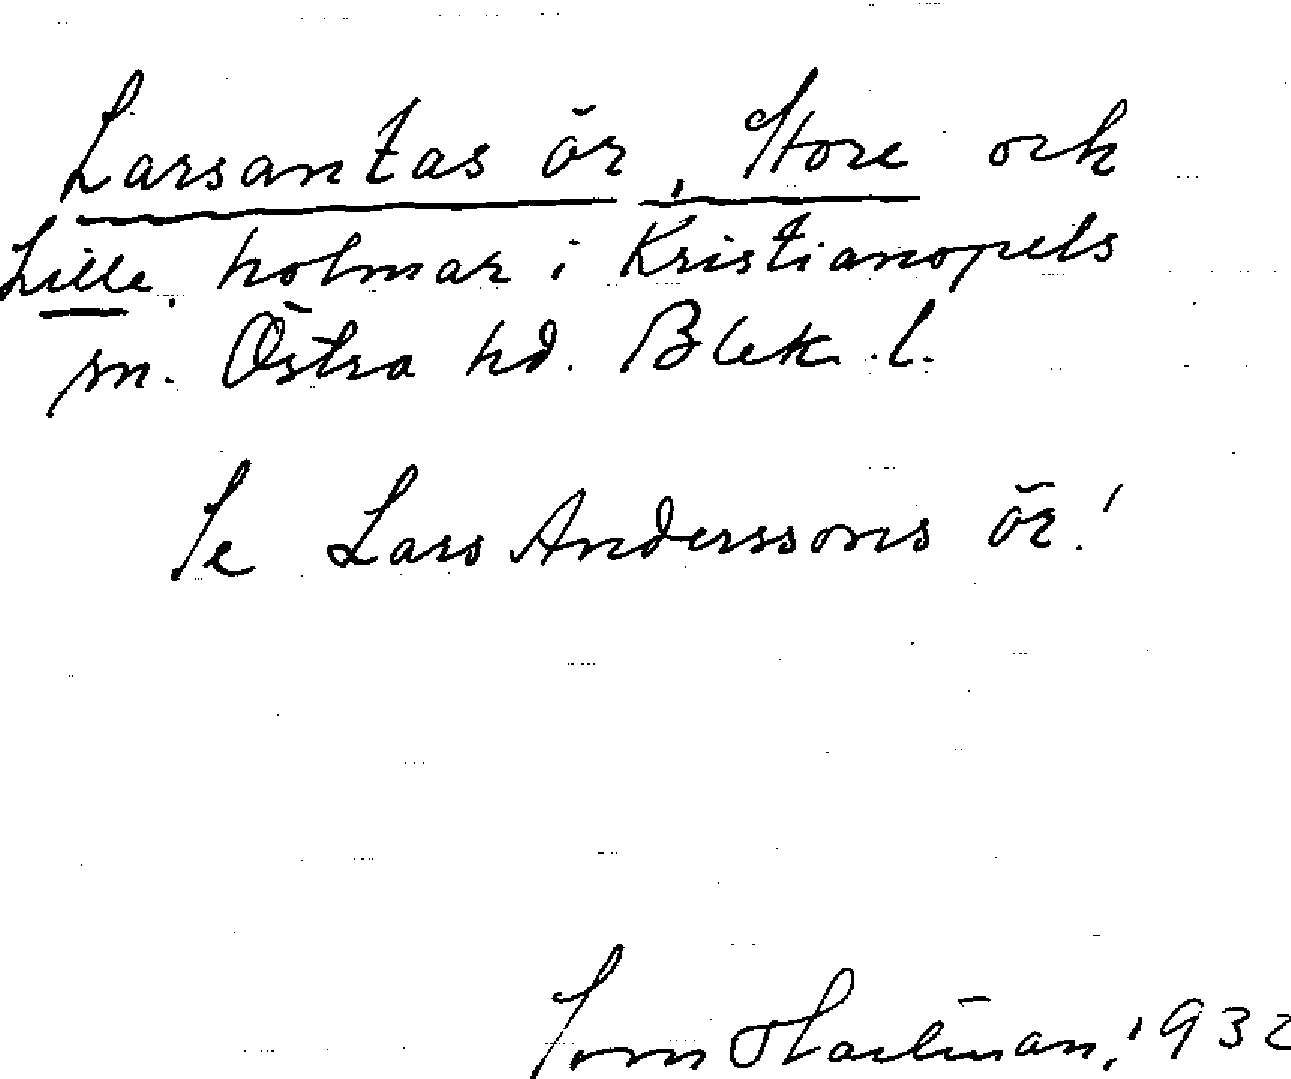 Larsantas ör, Store och
Lille, holmar i Kristianopels
sn. Östra hd. Blek. l.
Se Lars Anderssons ör!
Sven Hartman, 1932